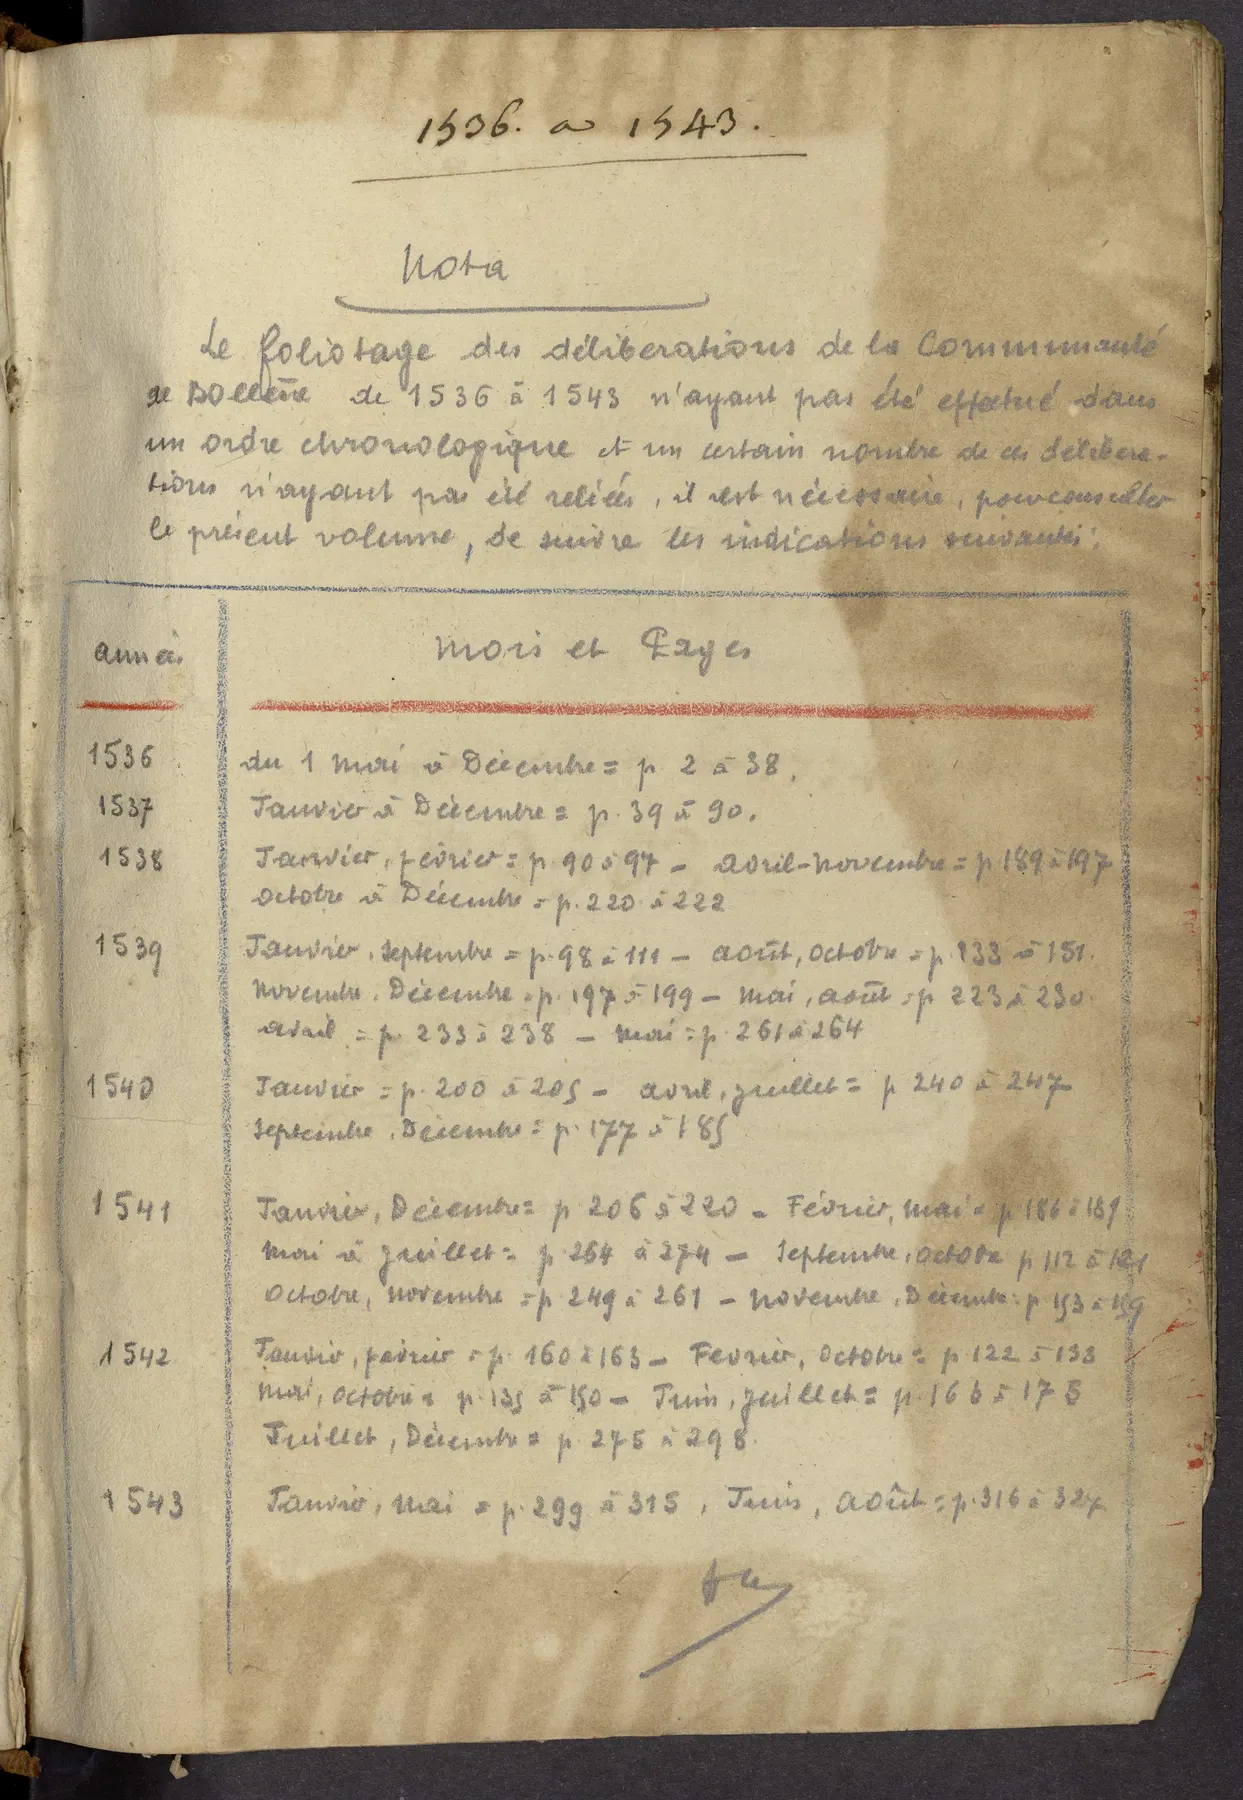 1536. a 1543.
Nota
Le foliotage des déliberations de la Communauté
de Bollène de 1536 à 1543 n'ayant pas été effectué dans
un ordre chronologique et un certain nombre de ces délibera-
tions n'ayant pas été reliées, il est nécessaire, pour consulter
le présent volume, de suivre les indications suivantes:
années
Mois et Pages
1536 du 1 Mai à Décembre = p 2 à 38.
1537 Janvier à Décembre = p. 39 à 90.
1538 Janvier, février = p. 90 à 97 - avril-Novembre = p 189 à 197
octobre à Décembre = p. 220 à 222
1539 Janvier, Septembre = p. 98 à 111 - août, octobre = p. 133 à 151.
Novembre, Décembre = p. 197 à 199 - Mai, août = p 223 à 230
avril = p. 233 à 238 - Mai = p. 261 à 264
1540 Janvier = p. 200 à 205 - avril, juillet = p 240 à 247
Septembre, Décembre = p. 177 à 185
1541 Janvier, Décembre = p 206 à 220 - Février, Mai = p 186 à 189
Mai à juillet = p 264 à 274 - Septembre, octobre p 112 à 121
Octobre, Novembre = p 249 à 261 - Novembre, Décembre = p 153 à 159
1542 Janvier, février = p. 160 à 163 - Fevrier, Octobre = p. 122 à 133
Mai, octobre = p. 135 à 150 - Juin, juillet = p. 166 à 175
Juillet, Décembre = p. 275 à 298.
1543 Janvier, Mai = p. 299 à 315, Juin, août = p. 316 à 327